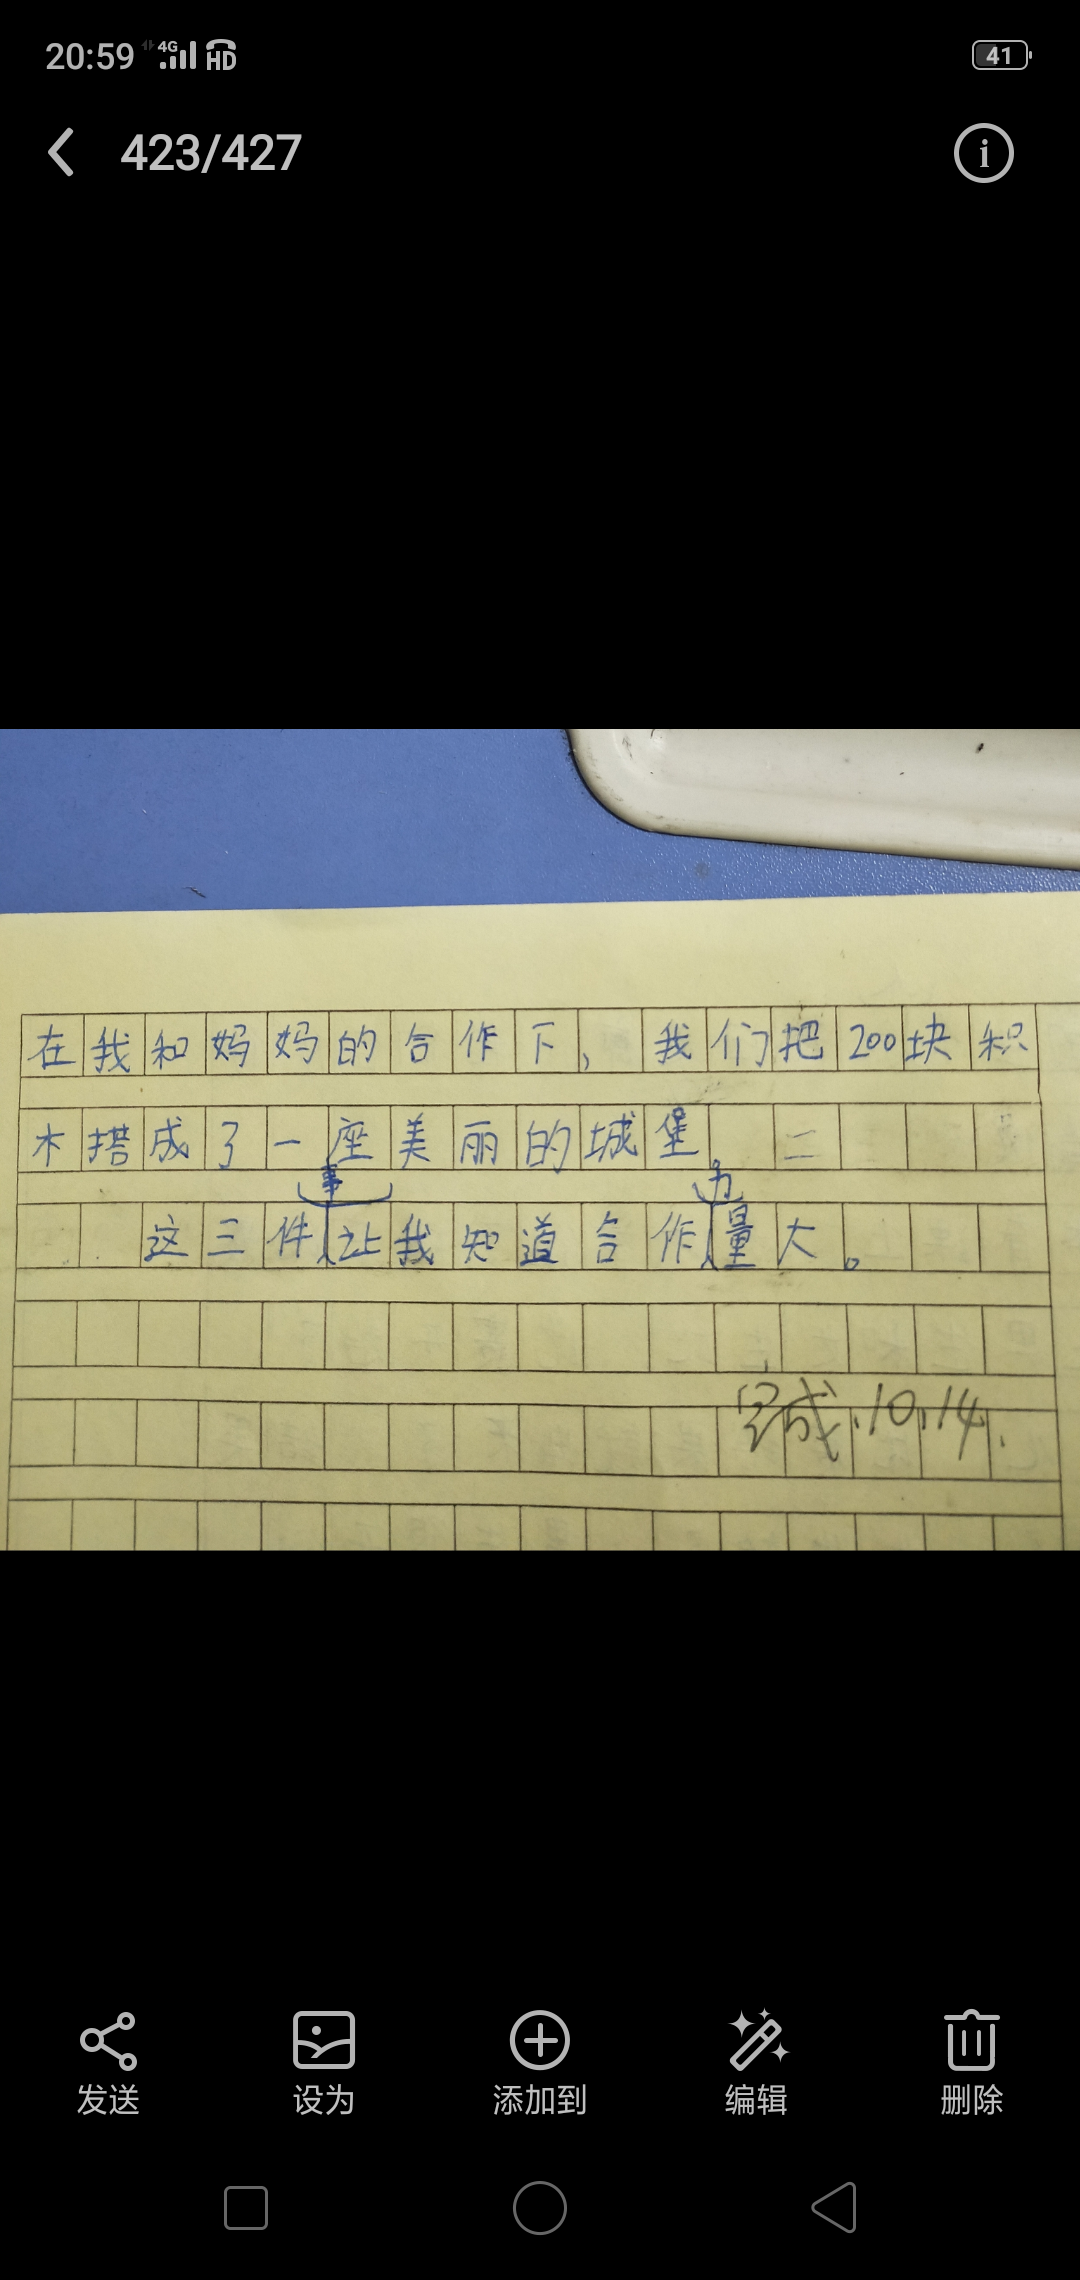 20:59 4G HD 41
423/427
在我和妈妈的合作下，我们把200块积
木搭成了一座美丽的城堡 二
这三件事让我知道合作力量大。
完成.10.14.
发送 设为 添加到 编辑 删除